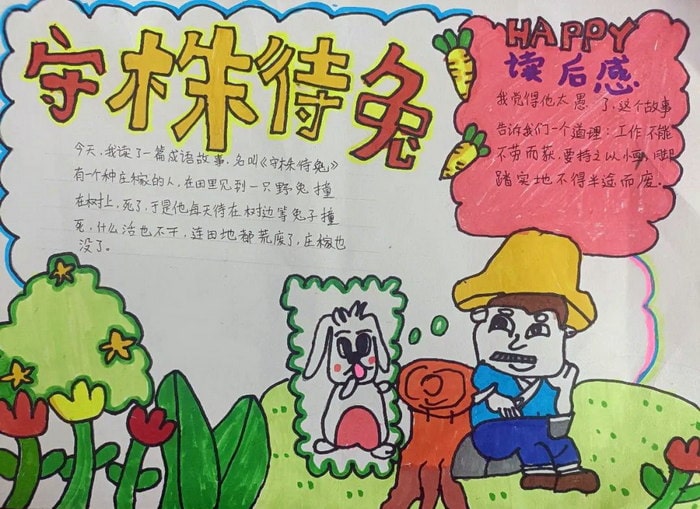 守株待兔
今天,我读了一篇成语故事,名叫《守株待兔》
有个种庄稼的人,在田里见到一只野兔撞
在树上,死了,于是他每天待在树边等兔子撞
死,什么活也不干,连田地都荒废了,庄稼也
没了。
HAPPY
读后感
我觉得他太愚 了,这个故事
告诉我们一个道理:工作不能
不劳而获,要持之以 脚
踏实地不得半途而废。